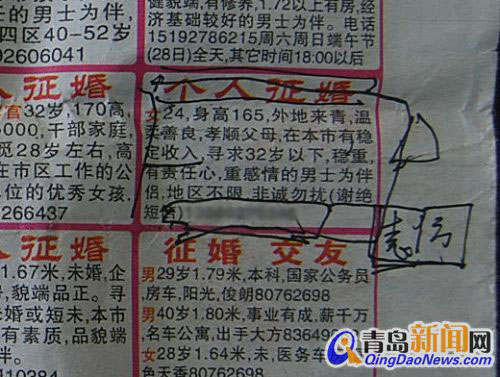 士的男士为伴。
四区40-52岁
02606041
健貌端,有修养,1.72以上有房,经
济基础较好的男士为伴。电话
15192786215周六周日端午节
(28日)全天,其它时间18:00以后
人征婚
官32岁,170高,
5000,干部家庭,
觅28岁左右,高
在市区工作的公
单位的优秀女孩,
0266437
个人征婚
女24,身高165,外地来青,温
柔善良,孝顺父母,在本市有稳
定收入,寻求32岁以下,稳重,
有责任心,重感情的男士为伴
侣,地区不限,非诚勿扰(谢绝
短信)
征婚
1.67米,未婚,企
貌端品正。寻
婚或短未,本市
有素质,品貌端
伴。
征婚 交友
男29岁1.79米,本科,国家公务员
房车,阳光,俊朗80762698
男40岁1.80米,事业有成,薪千万
名车公寓,出手大方8364
女28岁1.64米,未,医务车
角天香80762698
青岛新闻网
QingDaoNews.com